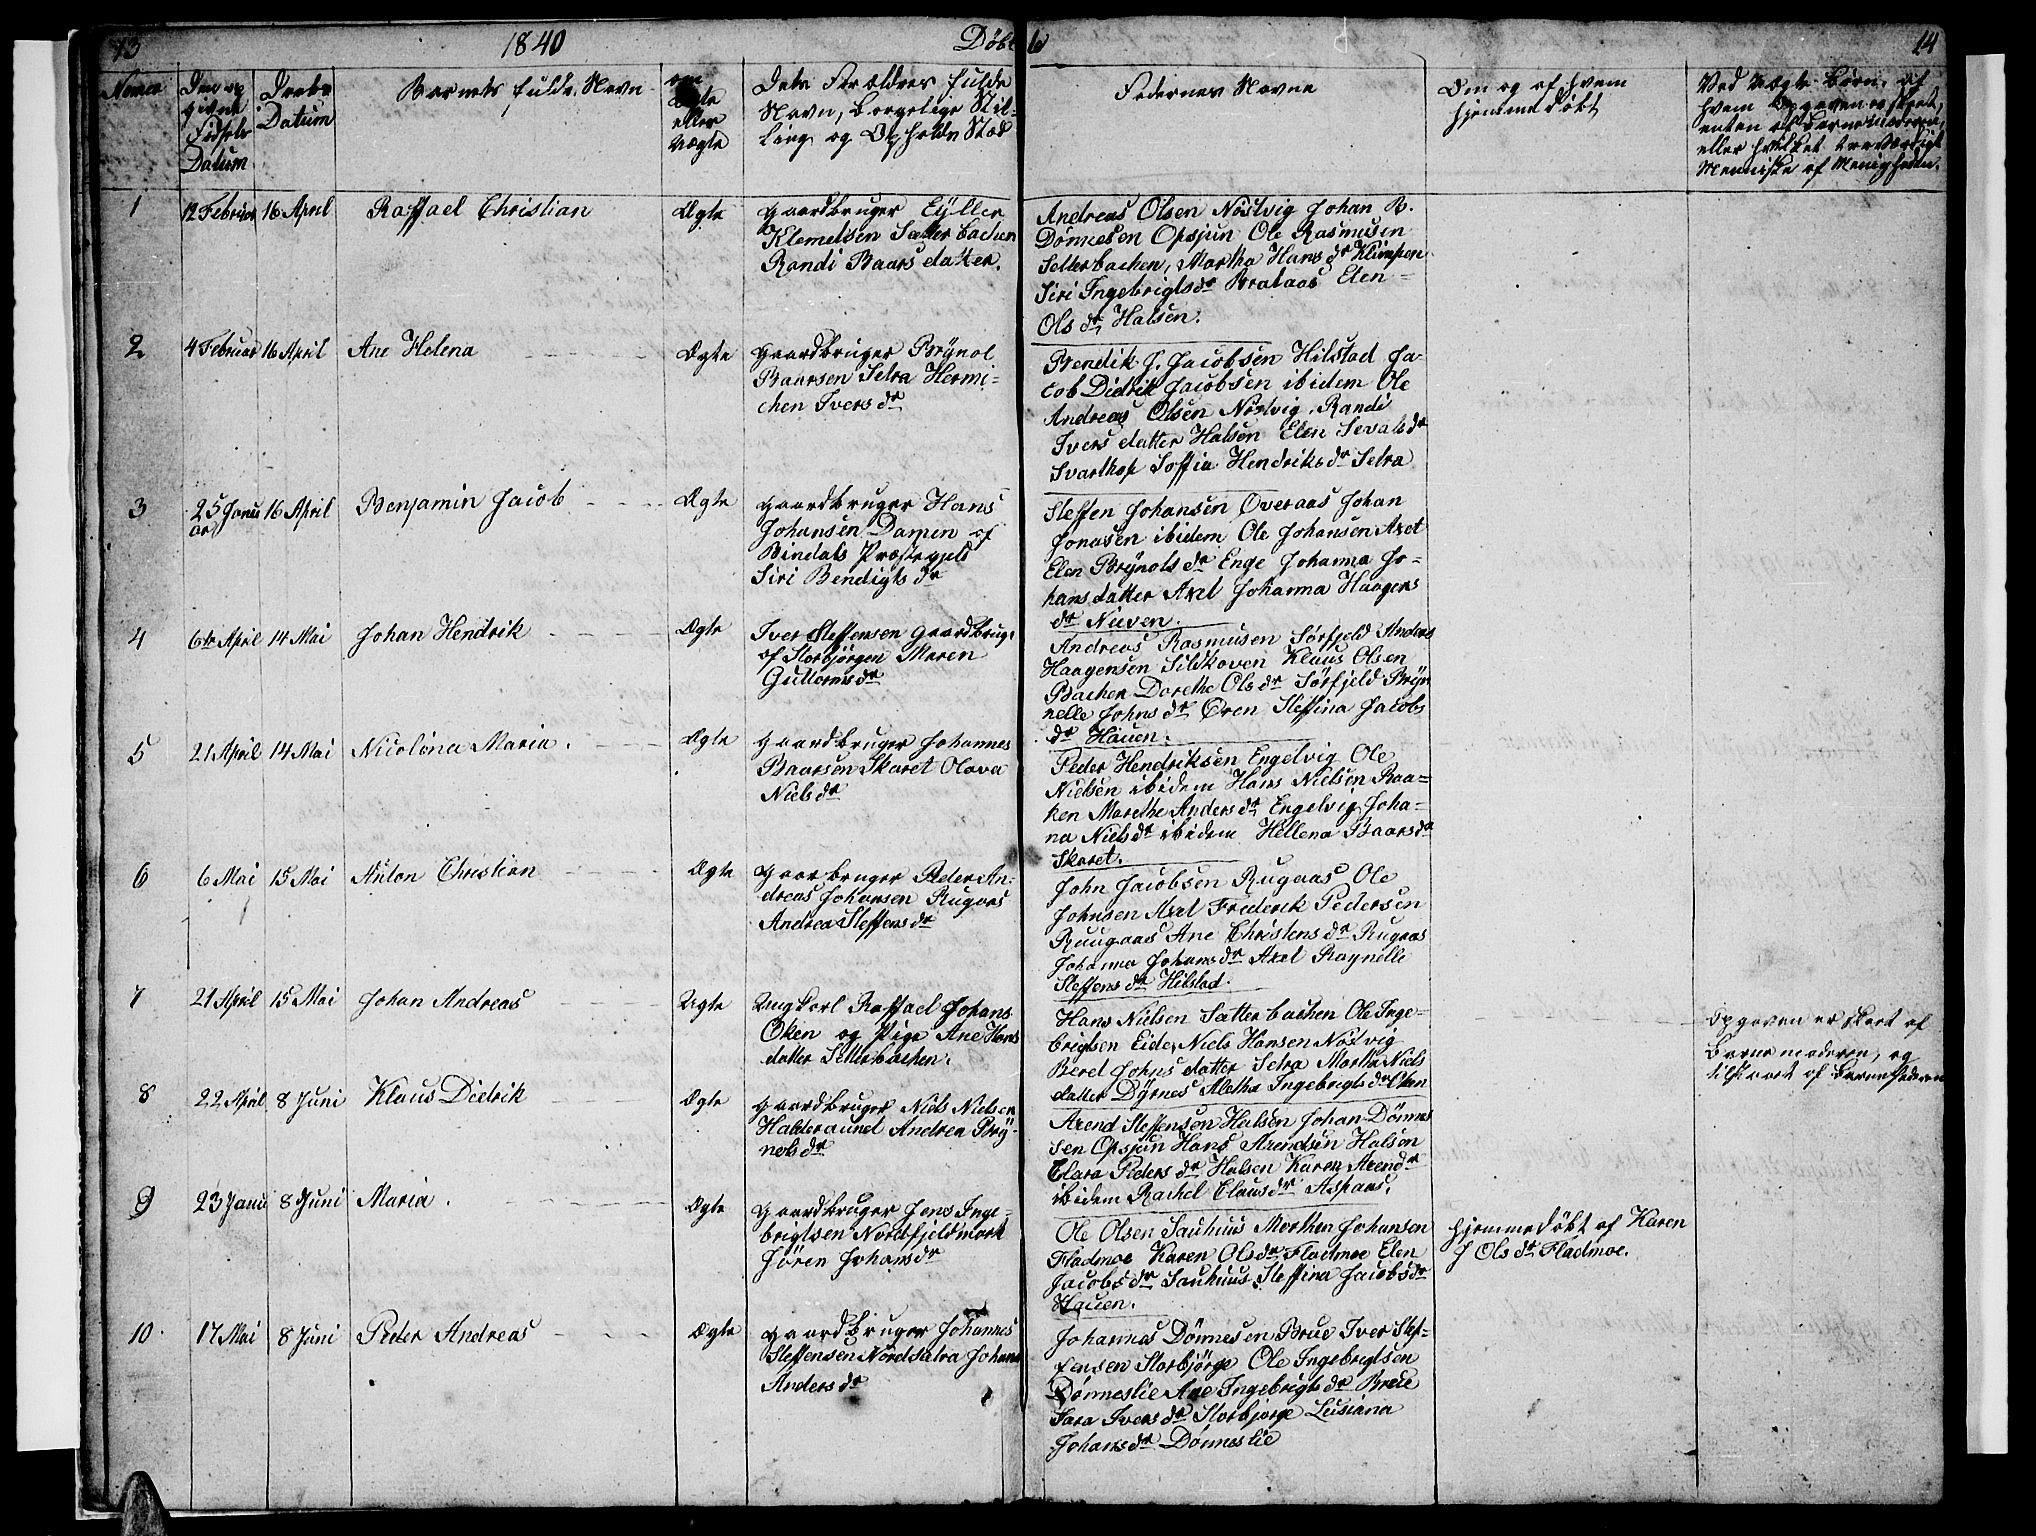 13
1840
Døbte
14
Numer
Den op
givne
Fødsels
Datum
Daabs
Datum
Barnets fulde Navn
om
Ægte
eller
uægte
Dets Forældres fulde
Navn, borgelige Stil-
ling og Opholds Sted
Fadernes Navne
Om og af hvem
hjemmedøbt
Ved Uægte Børn, af
hvem Opgaven er skeet,
enten af Barnemoderen,
eller hvilket troværdigt
Menniske af Menigheden.
1
12 Februar
16 April
Raffael Christian
Ægte
Gaardbruger Eyller
Klemetsen Sætterbachen
Randi Baarsdatter.
Andreas Olsen Nöstvig Johan B.
Dönnesen Opsjun Ole Rasmusen
Setterbachen, Martha Hans dr Klimpen
Siri Ingebrigts dr Brataas Elen
Ols dr Halsen.
2
4 Februar
16 April
Ane Helena
Ægte
Gaardbruger Brÿnol
Baarsen Setra Hermi-
chen Ivers dr
Bendik J. Jacobsen Hilstad Ja-
cob Didrik Jacobsen ibidem Ole
Andreas Olsen Nöstvig, Randi
Ivers datter Halsen Elen Sevals dr
Svarthop Soffia Hendriks dr Setra
3
25 Janu
ar
16 April
Benjamin Jacob
Ægte
Gaardbruger Hans
Johansen Damen af
Bindals Præstegjeld
Siri Bendigts dr
Steffen Johansen Overaas Johan
Jonasen ibidem Ole Johansen Axet
Elen Brÿnols dr Enge Johanna Jo-
hans datter Axel Johanna Haagens
dr Nieven.
4
6te April
14 Mai
Johan Hendrik
Ægte
Iver Steffensen Gaardbrug.
af Storbjörgen Maren
Guttorms dr
Andreas Rasmusen Sörfjeld Anders
Haagensen Sildkoven Klaus Olsen
Bachen Dorethe Ols dr Sörfjeld Brÿn
nelle Johns dr Ören Steffina Jacobs
dr Hauen.
5
21 April
14 Mai
Nicolina Maria.
Ægte
Gaardbruger Johannes
Baarsen Skaret Olava
Niels dr
Peder Hendriksen Engelvig Ole
Nielsen ibidem Hans Nielsen Baa-
ken Marethe Anders dr Engelvig Joha-
na Niels dr ibidem Hellena Baars dr
Skaret.
6
6 Mai
15 Mai
Anton Christian
Ægte
Gaardbruger Peder An-
dreas Johansen Rugaas
Andrea Steffens dr
John Jacobsen Rugaas Ole
Johnsen Axel Frederik Pedersen
Ruugaas Ane Christens dr Rugaas
Johanna Johans dr Axel Raynelle
Steffens dr Hilstad.
7
21 April
15 Mai
Johan Andreas
Uægte
Ungkarl Raffael Johans
Oken og Pige Ane Hans
datter Setterbachen.
Hans Nielsen Sætterbachen Ole Inge-
brigtsen Eide, Niels Hansen Nöstvig
Beret Johns datter Setra Martha Niels
datter Dÿrnes Aletha Ingebrigts dr Oken
Opgaven er skeet af
Barnemoderen, og
tilstaaet af Barnefaderen
8
22 April
8 Juni
Klaus Didrik
Ægte
Gaardbruger Niels Nielsen
Halderaunet Andrea Brÿ-
nols dr
Arend Steffensen Halsen Johan Dönnes
sen Opsjun Hans Arendsen Halsen
Clara Peders dr Halsen Karen Arends dr
ibidem Rachel Claus dr Aspaas.
9
23 Janu
8 Juni
Maria.
Ægte
Gaardbruger Jens Inge-
brigtsen Nordfjeldmark
Jören Johans dr
Ole Olsen Sauhuus Morthen Johansen
Fladmoe Karen Ols dr Fladmoe Elen
Jacobs dr Sauhuus Steffina Jacobs dr
Hauen.
hjemmedøbt af Karen
J Ols dr Fladmoe.
10
17 Mai
8 Juni
Peder Andreas
Ægte
Gaardbruger Johannes
Steffensen Nordsatra Johana
Anders dr
Johannes Dönnesen Brue Iver Stef-
fensen Storbjörge Ole Ingebrigtsen
Dönneslie Ane Ingebrigts dr Breie
Sara Ivers dr Storbjorge Lusiana
Johans dr Dönneslie